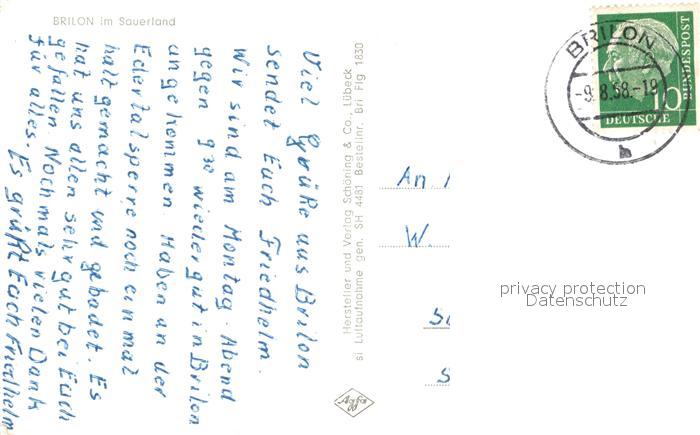 BRILON im Sauerland
Viel Grüße aus Brilon
sendet Euch Friedhelm.
Wir sind am Montag-Abend
gegen 9³⁰ wieder gut in Brilon
angekommen. Haben an der
Edertalsperre noch einmal
halt gemacht und gebadet. Es
hat uns allen sehr gut bei Euch
gefallen. Nochmals vielen Dank
für alles.
Es grüßt Euch Friedhelm
Hersteller und Verlag Schöning & Co., Lübeck
si Luftaufnahme gen. SH 4481 Bestellnr. Bri Flg 1830
Agfa
BRILON
-9.8.58.-19
h
10
DEUTSCHE
BUNDESPOST
An
W.
privacy protection
Datenschutz